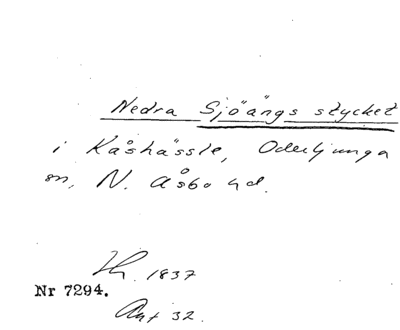 Nedra Sjöängs stycket
i Kåshässle, Oderljunga
sn, N. Åsbo hd.
1837
Nr 7294.
Akt 32.